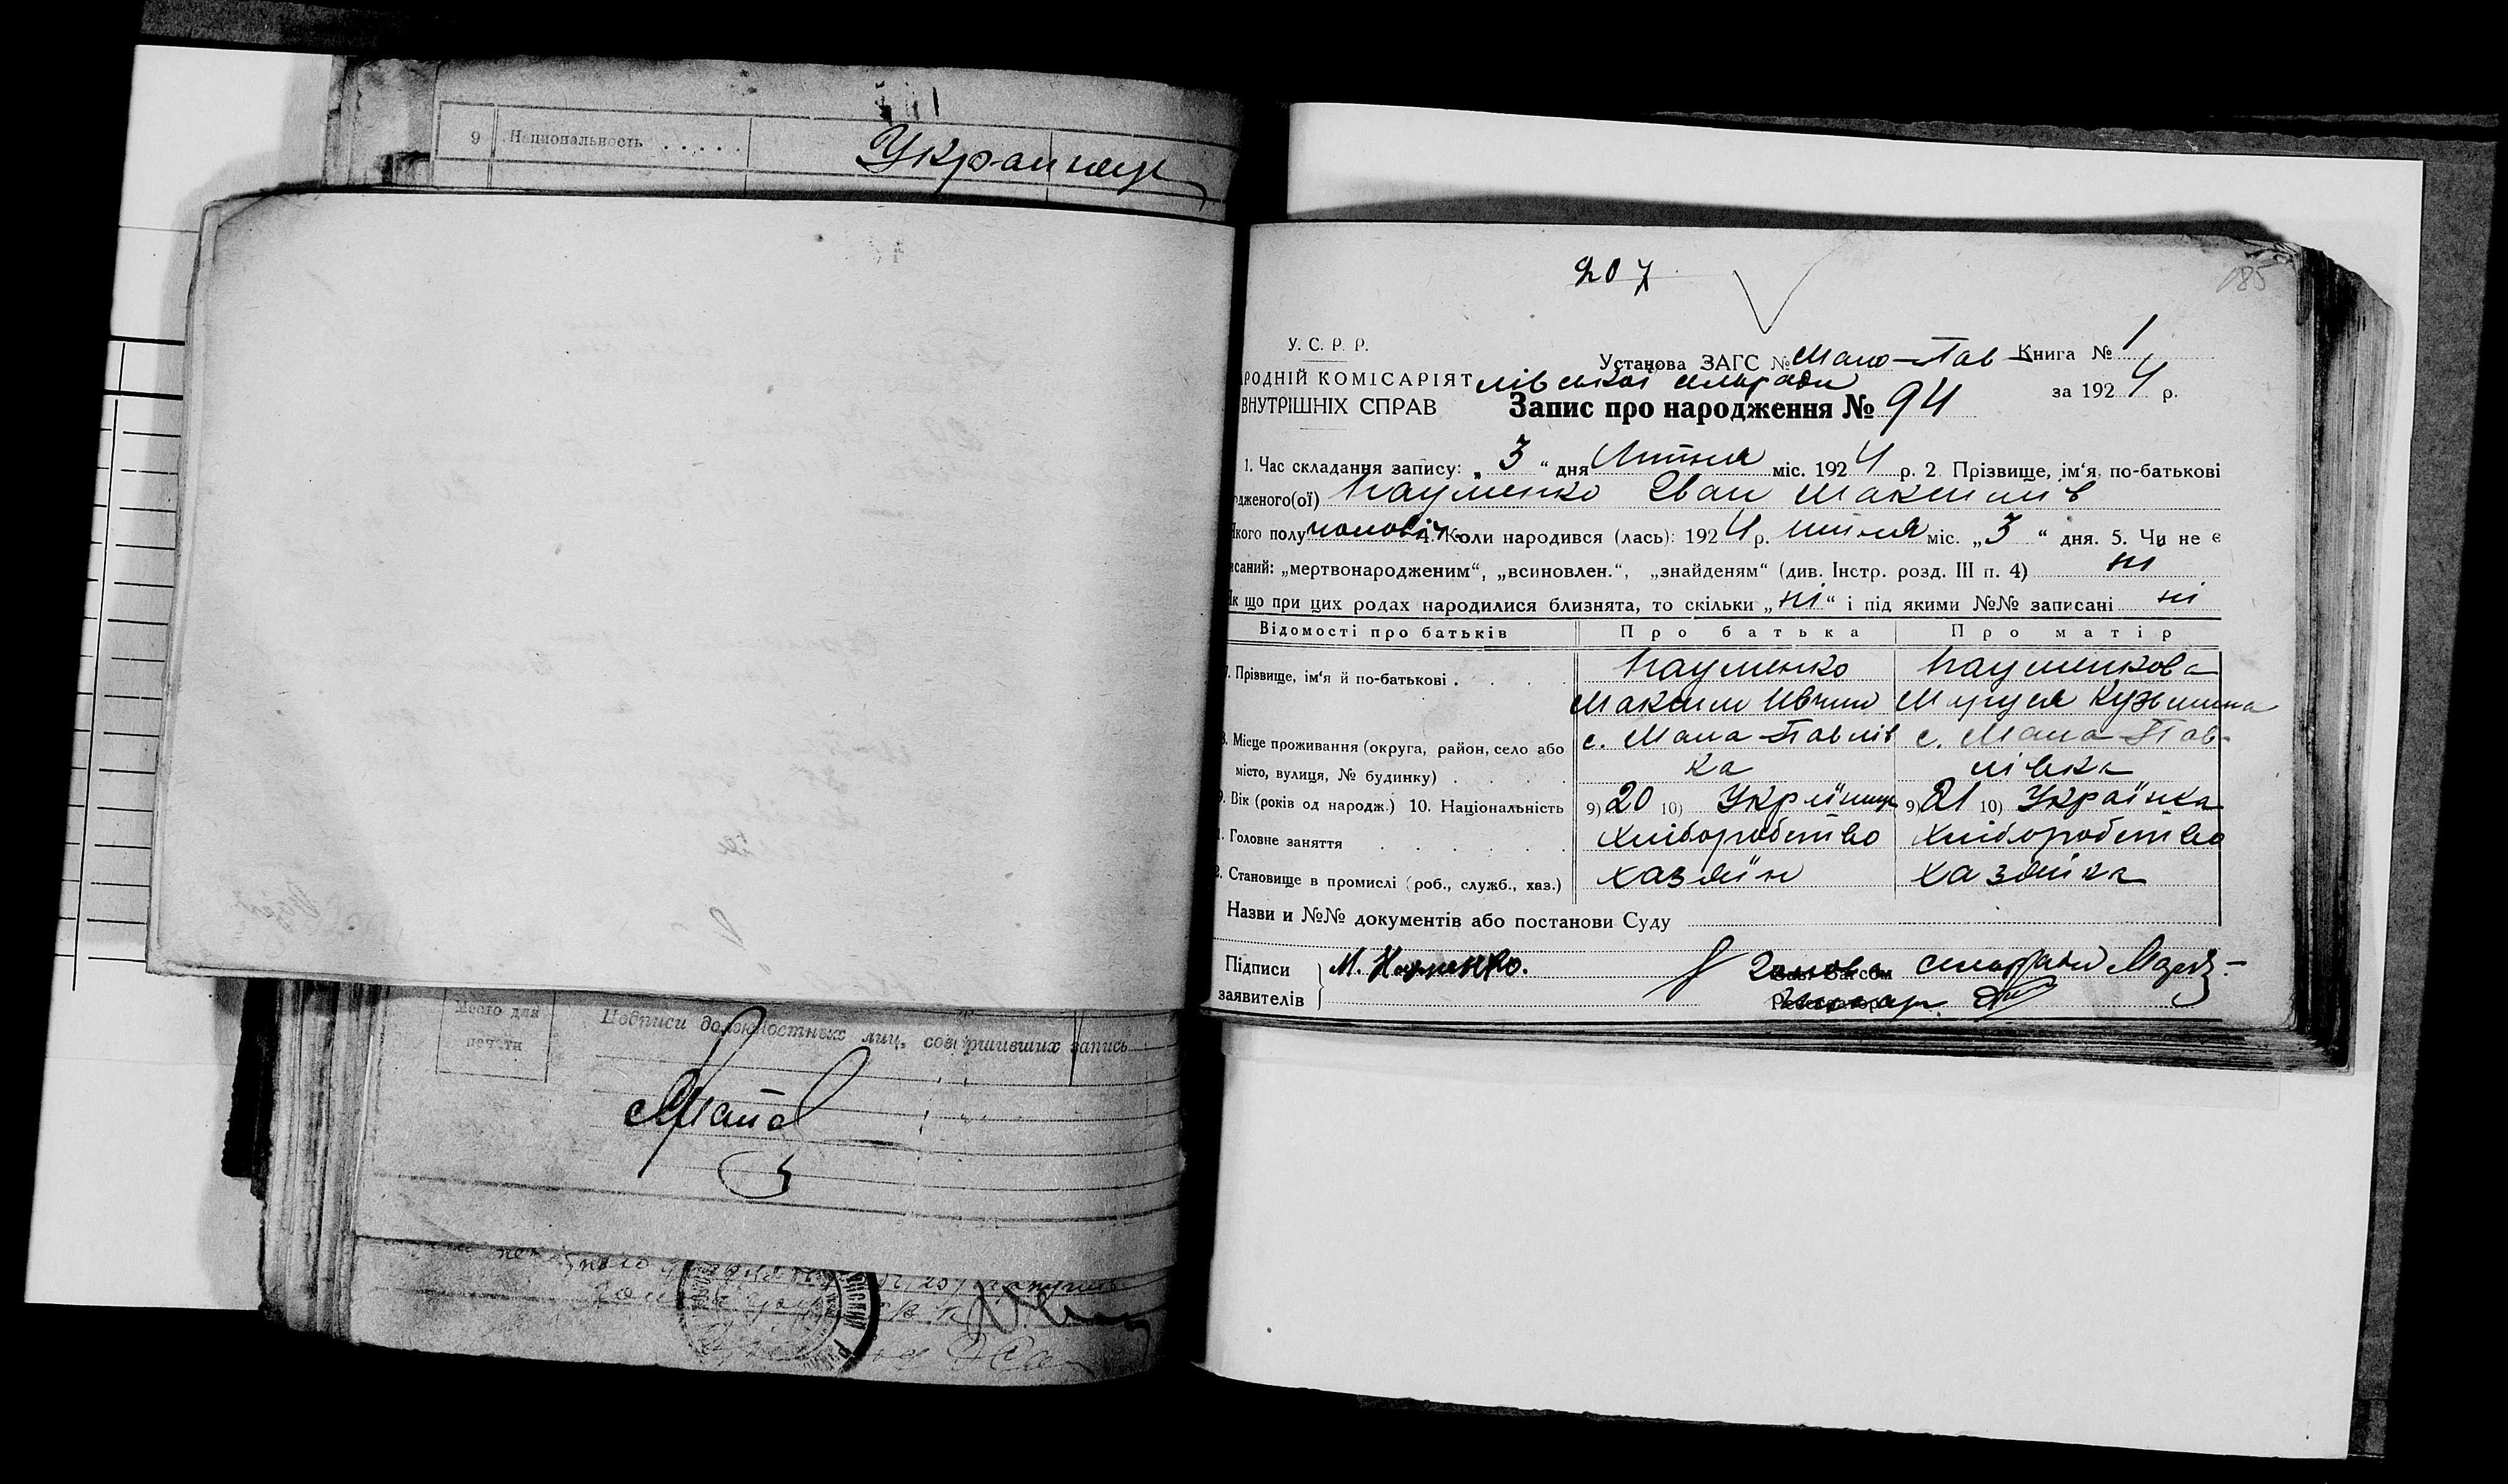 9 Национальность . . . . .
Украинец
Место для
печати
Подписи должностных лиц, совершивших запись
207
185
У. С. Р. Р.
Установа ЗАГС № Мало-Пав- Книга № 1
РОДНІЙ КОМІСАРІЯТ лівської сільради за 1924 р.
ВНУТРІШНІХ СПРАВ Запис про народження № 94
1. Час складання запису: „ 3 “ дня Липня міс. 1924 р. 2 Прізвище, ім‘я, по-батькові
дженого(ої) Науменко Іван Максимів
кого полу чоловіч. 4. Коли народився (лась): 1924 р. липня міс. „ 3 “ дня. 5. Чи не є
исаний: „мертвонародженим“, „всиновлен.“, „знайденям“ (див. Інстр. розд. III п. 4) ні
як що при цих родах народилися близнята, то скільки „ ні “ і під якими №№ записані ні
Відомості про батьків Про батька Про матір
7. Прізвище, ім‘я й по-батькові . . . . Науменко Науменкова
Максим Маруся Кузьмина
8. Місце проживання (округа, район, село або с. Мала-Павлів с. Мала-Пав-
місто, вулиця, № будинку) . . . . ка лівка
9. Вік (років од народж.) 10. Національність 9) 20 10) Українець 9) 21 10) Українка
1. Головне заняття . . . . . . Хліборобство Хліборобство
2. Становище в промислі (роб., служб., хаз.) хазяїн хазяйка
Назви и №№ документів або постанови Суду
Підписи М. Науменко. Голова сільради
заявителів